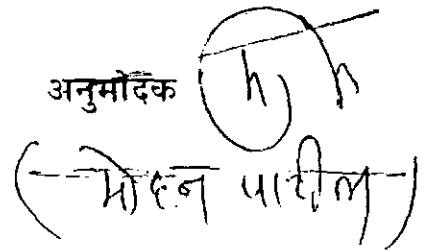 अनुमोदक
(मोहन पाटील)